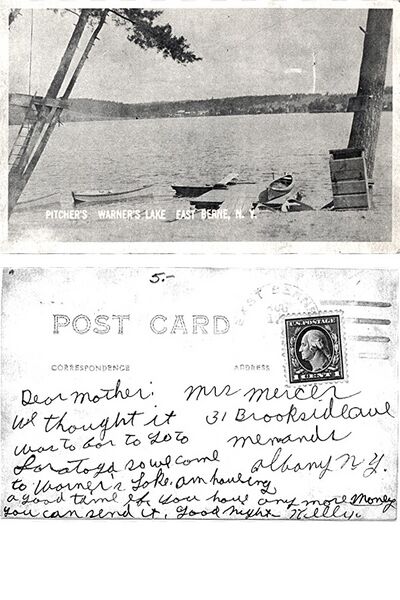 PITCHER'S WARNER'S LAKE EAST BERNE, N.Y.
5.-
POST CARD
EAST BERNE
U.S. POSTAGE
1 CENT 1
CORRESPONDENCE
ADDRESS
Dear Mother:
We thought it
was to far to go to
Saratoga so we come
to Warner's Lake. am haveing
a good time if you have any more money
you can send it, Good night Nelly.
Mrs Mercer
31 Brookside Ave
Menands
Albany N.Y.